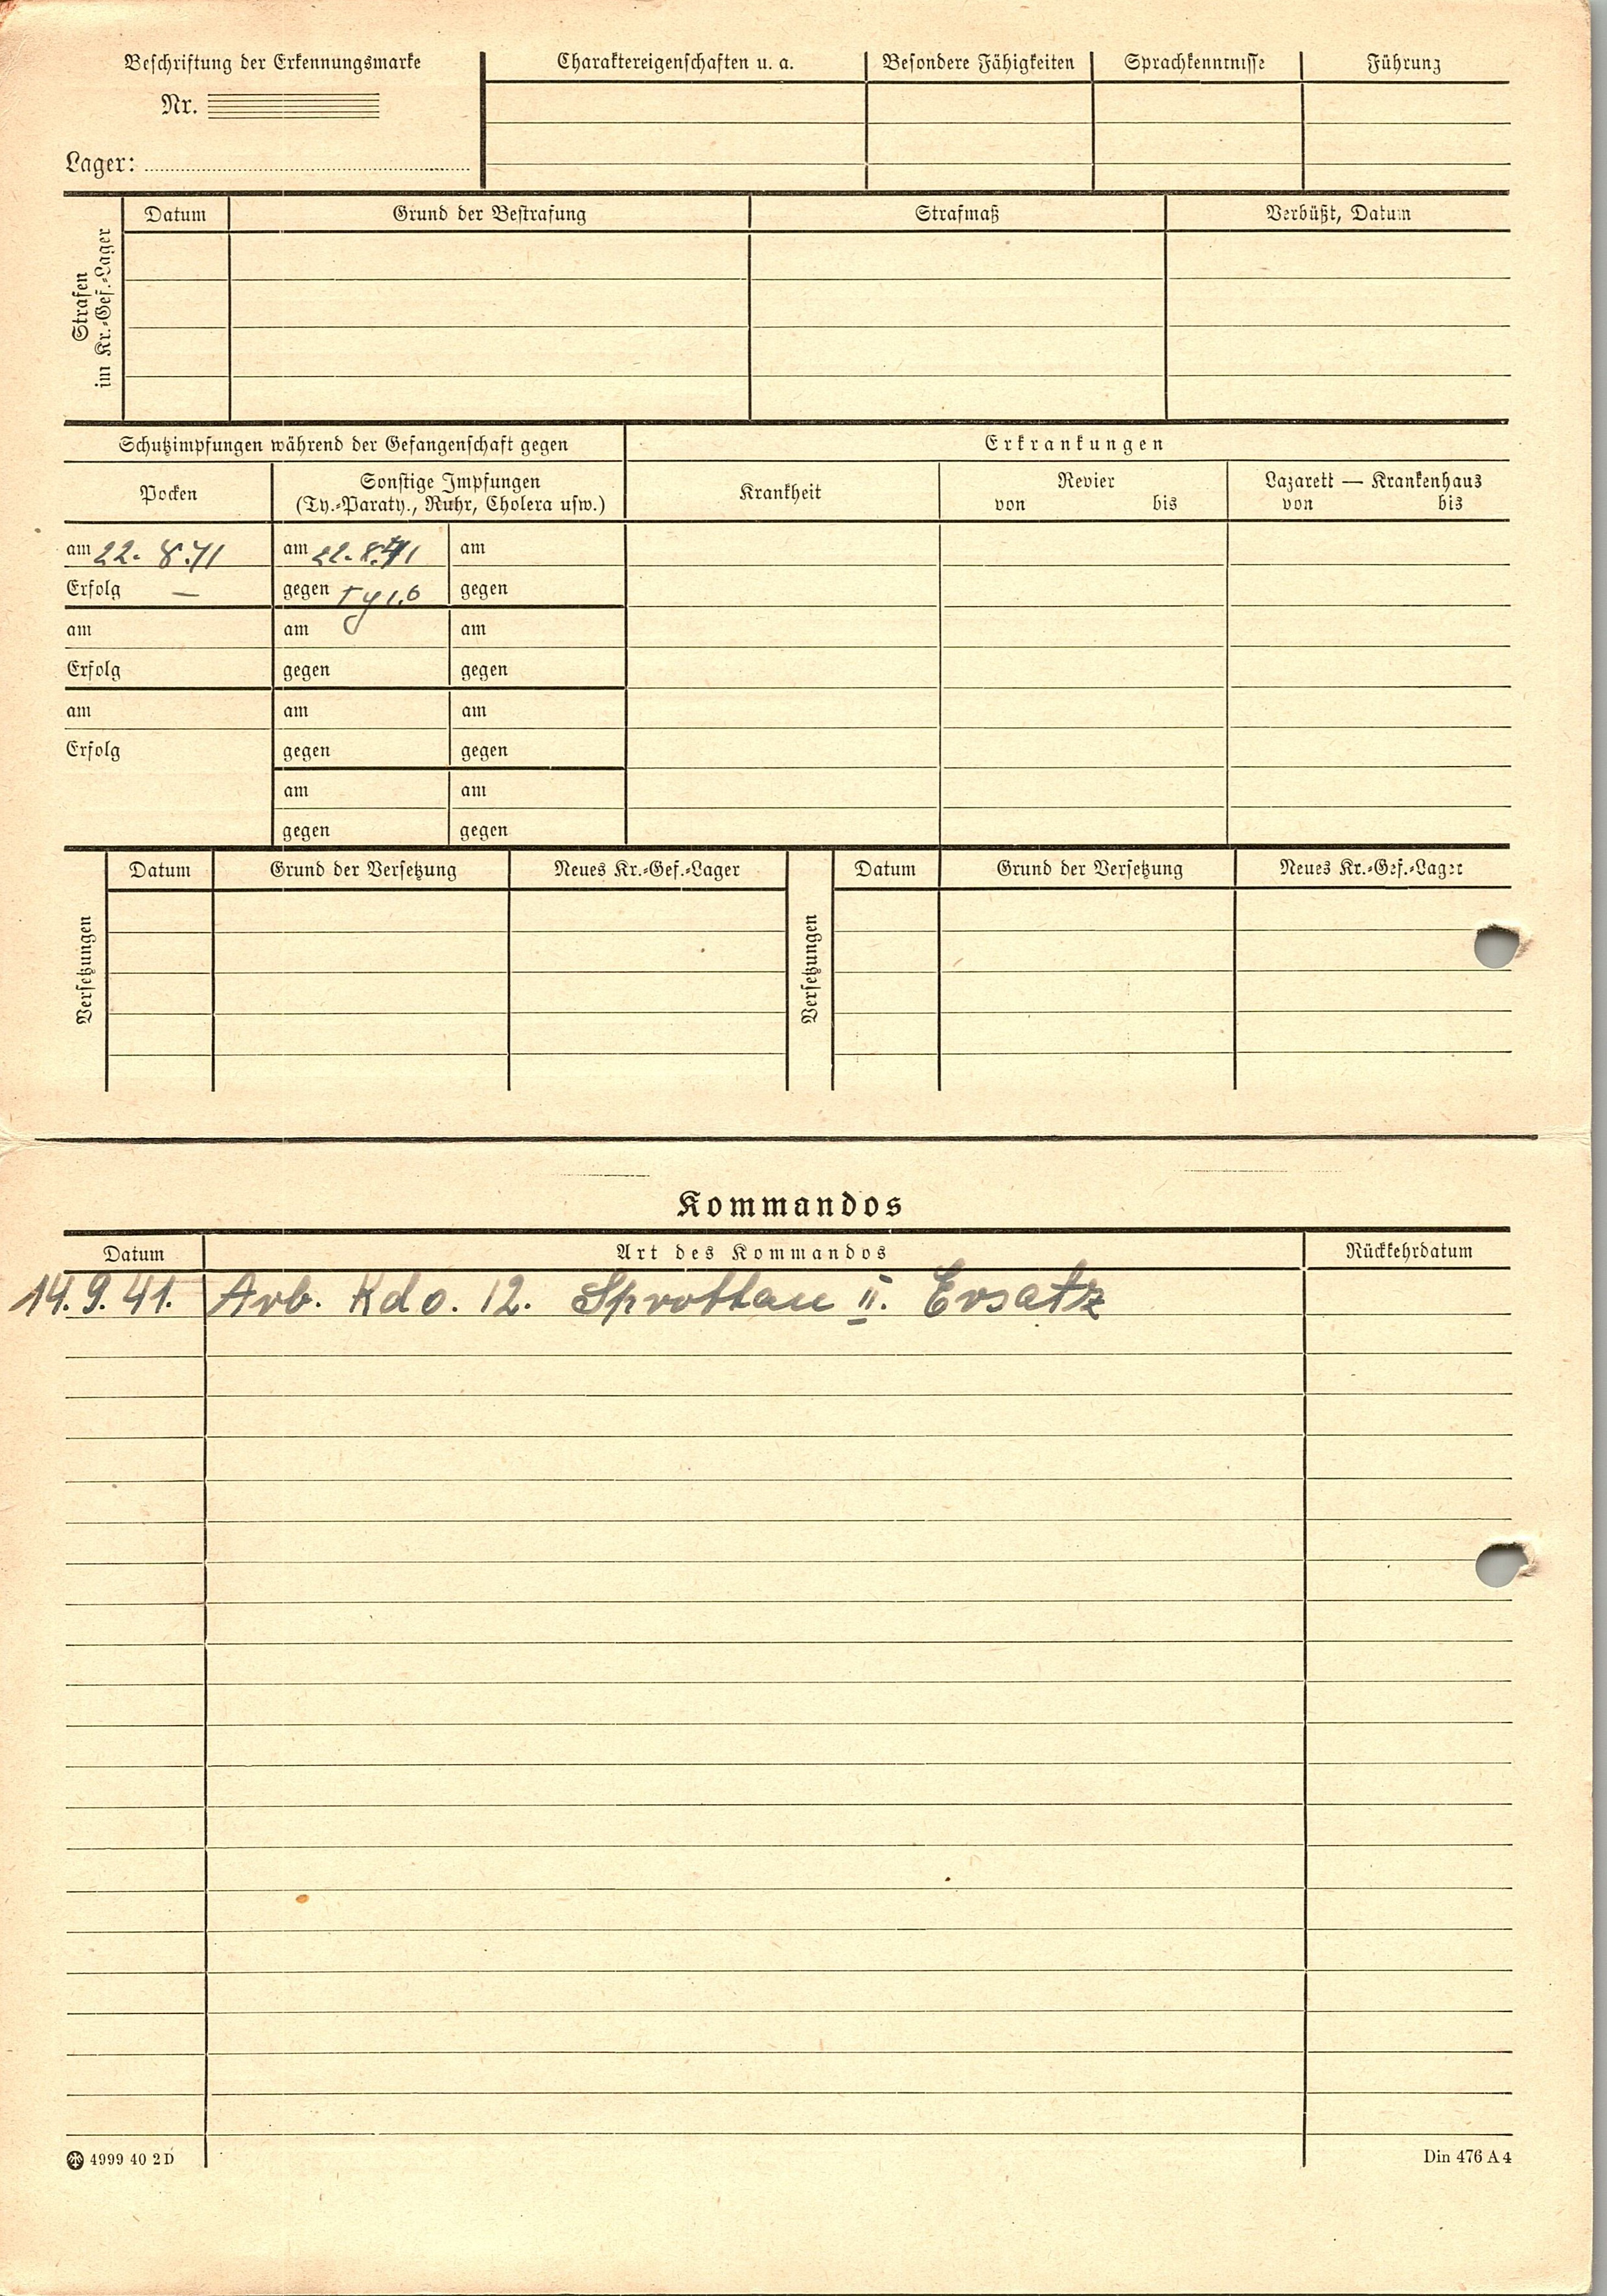 Beschriftung der Erkennungsmarke
Nr.
Lager:
Charaktereigenschaften u. a.
Besondere Fähigkeiten
Sprachkenntnisse
Führung
Strafen
im Kr.-Gef.-Lager
Datum
Grund der Bestrafung
Strafmaß
Verbüßt, Datum
Schutzimpfungen während der Gefangenschaft gegen
Erkrankungen
Pocken
Sonstige Impfungen
(Ty.-Paraty., Ruhr, Cholera usw.)
Krankheit
Revier
von bis
Lazarett — Krankenhaus
von bis
am 22. 8. 41 am 22. 8. 41 am
Erfolg — gegen gegen
am am am
Erfolg gegen gegen
am am am
Erfolg gegen gegen
am am
gegen gegen
Versetzungen
Datum Grund der Versetzung Neues Kr.-Gef.-Lager
Versetzungen
Datum Grund der Versetzung Neues Kr.-Gef.-Lager
Kommandos
Datum Art des Kommandos Rückkehrdatum
14. 9. 41. Arb. Kdo. 12. Sprottau II. Ersatz
4999 40 2D
Din 476 A 4